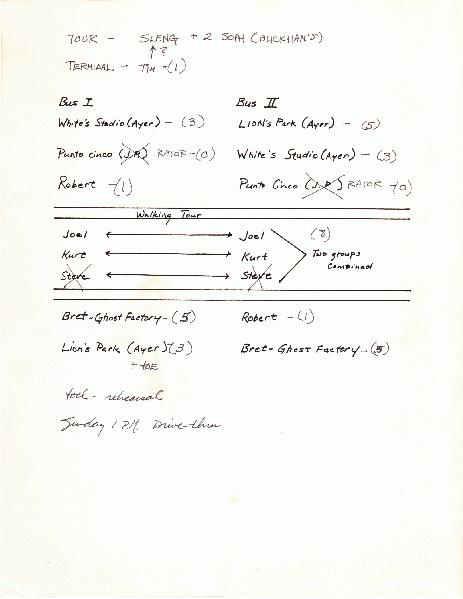 TOUR - SLENG + 2 SOPH (BUCKMAN'S)
↑ ?
TERMINAL - TIM - (1)
Bus I
White's Studio (Ayer) - (3)
Punto cinco (J.R.) RAIOR - (0)
Robert - (1)
Bus II
LION's Park (Ayer) - (5)
White's Studio (Ayer) - (3)
Punto Cinco (J.R.) RAIOR - (0)
Walking Tour
Joel ↔ Joel (8)
Kurt ↔ Kurt Two groups
Combined
Steve ↔ Steve
Bret - Ghost Factory - (5)
Lion's Park (Ayer) (3)
+ JOE
Robert - (1)
Bret - Ghost Factory - (5)
tool - rehearsal
Sunday 1 PM. Drive-thru